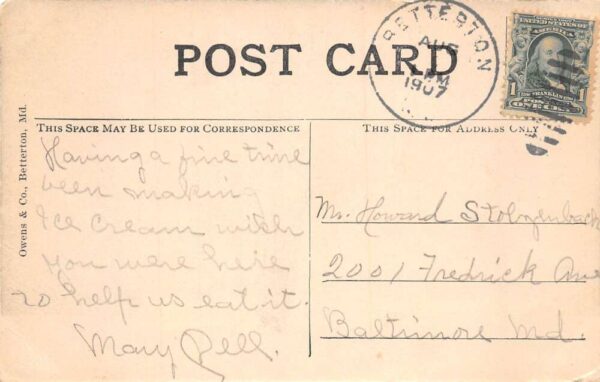 POST CARD
BETTERTON
AUG
PM
1907
UNITED STATES OF
FRANKLIN
1 1
ONE CENT
THIS SPACE MAY BE USED FOR CORRESPONDENCE
THIS SPACE FOR ADDRESS ONLY
Owens & Co., Betterton, Md.
Having a fine time
been making
Ice Cream wish
you were here
to help us eat it.
Mary Pell.
Mr. Howard
2001 Fredrick Ave
Baltimore Md.